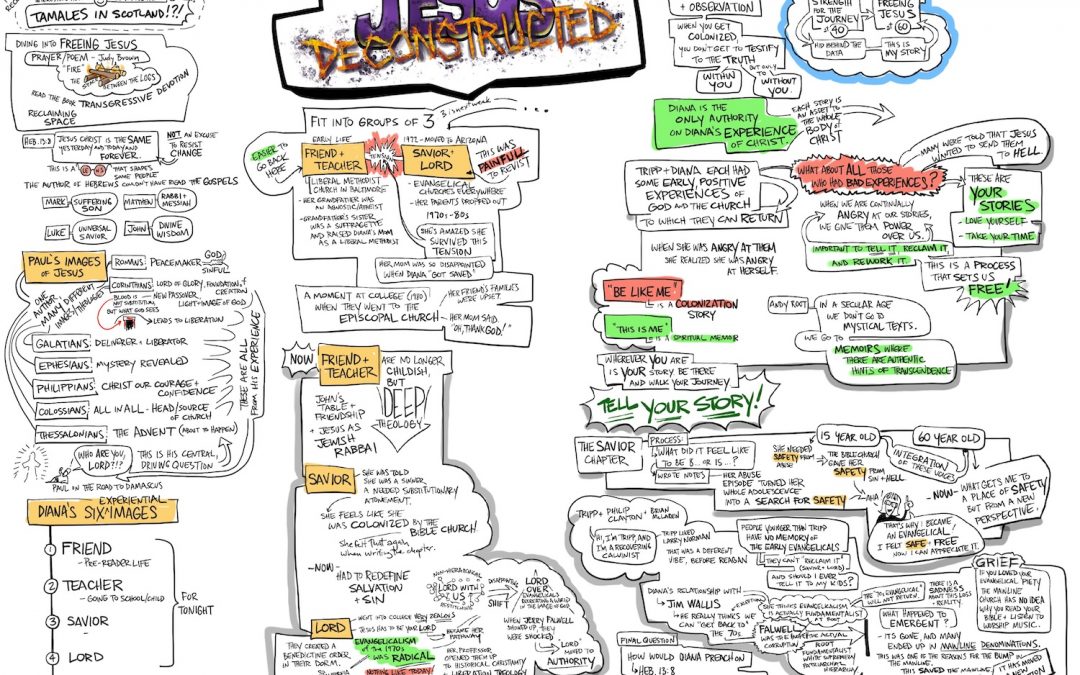 TAMALES IN SCOTLAND!?!
DIVING INTO FREEING JESUS
PRAYER/POEM - JUDY BROWN
"FIRE"
THE SPACE BETWEEN THE LOGS
READ THE BOOK TRANSGRESSIVE DEVOTION
RECLAIMING
SPACE
HEB. 13:8
JESUS CHRIST IS THE SAME
YESTERDAY AND TODAY AND
FOREVER.
NOT AN EXCUSE
TO RESIST
CHANGE
THIS IS A
THAT SHAPES
SAME PEOPLE
THE AUTHOR OF HEBREWS COULDN'T HAVE READ THE GOSPELS
MARK
SUFFERING
SON
MATTHEW
RABBI +
MESSIAH
LUKE
UNIVERSAL
SAVIOR
JOHN
DIVINE
WISDOM
PAUL'S IMAGES
OF JESUS
ONE
AUTHOR
MANY DIFFERENT
IMAGES/THEOLOGIES
ROMANS:
PEACEMAKER
GOD
SINFUL
CORINTHIANS:
LORD OF GLORY, FOUNDATION, +
CREATION
BLOOD IS
NOT SUBSTITUTIONAL
BUT WHAT GOD SEES
NEW PASSOVER
LIGHT + IMAGE OF GOD
LEADS TO LIBERATION
GALATIANS: DELIVERER + LIBERATOR
EPHESIANS: MYSTERY REVEALED
PHILIPPIANS: CHRIST OUR COURAGE +
CONFIDENCE
COLOSSIANS: ALL IN ALL - HEAD/SOURCE
OF CHURCH
THESSALONIANS: THE ADVENT (ABOUT TO HAPPEN)
THESE ARE ALL
FROM HIS EXPERIENCE
WHO ARE YOU,
LORD?!?
THIS IS HIS CENTRAL,
DRIVING QUESTION
PAUL ON THE ROAD TO DAMASCUS
EXPERIENTIAL
DIANA'S SIX^IMAGES
1 FRIEND
- PRE-READER LIFE
2 TEACHER
- GOING TO SCHOOL/CHILD
3 SAVIOR
-
4 LORD
FOR
TONIGHT
JESUS
DECONSTRUCTED
FIT INTO GROUPS OF 3
3 is next week
EASIER TO
GO BACK
HERE
EARLY LIFE
FRIEND +
TEACHER
TENSION
1972 - MOVED TO ARIZONA
SAVIOR +
LORD
THIS WAS
PAINFULL
TO REVISIT
LIBERAL METHODIST
CHURCH IN BALTIMORE
- HER GRANDFATHER WAS
AN AGNOSTIC/ATHEIST
- GRANDFATHER'S SISTER
WAS A SUFFRAGETTE
AND RAISED DIANA'S MOM
AS A LIBERAL METHODIST
- EVANGELICAL
CHURCHES EVERYWHERE
- HER PARENTS DROPPED OUT
1970s-80s
SHE'S AMAZED SHE
SURVIVED THIS
TENSION
HER MOM WAS SO DISAPPOINTED
WHEN DIANA "GOT SAVED"
A MOMENT AT COLLEGE (1980)
WHEN THEY WENT TO THE
EPISCOPAL CHURCH
HER FRIEND'S FAMILIES
WERE UPSET.
- HER MOM SAID
"OH, THANK GOD!"
NOW
FRIEND +
TEACHER
ARE NO LONGER
CHILDISH,
BUT
DEEP!
THEOLOGY
JOHN'S
TABLE +
FRIENDSHIP
+ JESUS AS
JEWISH
RABBAI
SAVIOR
SHE WAS TOLD
SHE WAS A SINNER
& NEEDED SUBSTITUTIONARY
ATONEMENT.
SHE FEELS LIKE SHE
WAS COLONIZED BY THE
BIBLE CHURCH!
She felt that again
when writing the chapter.
- NOW -
HAD TO REDEFINE
SALVATION
+ SIN
NON-HIERARCHICAL
LORD WITH
US
DISAPPOINTING
SHIFT
LORD
OVER
EVANGELICALS
WHEN JERRY FALWELL
SHOWED UP, THEY
WERE SHOCKED
"LORD"
MOVED TO
AUTHORITY
LORD
WENT INTO COLLEGE VERY ZEALOUS
JESUS HAS TO BE YOUR LORD
THEY CREATED A
BENEDICTINE ORDER
IN THEIR DORM.
EVANGELICALISM
OF THE 1970s
WAS RADICAL
NOTHING LIKE TODAY
BECAME HER
PATHWAY
HER PROFESSOR
OPENED THEM UP
TO HISTORICAL CHRISTIANITY
+ LIBERATION THEOLOGY
+ OBSERVATION
WHEN YOU GET
COLONIZED,
YOU DON'T GET TO TESTIFY
TO THE TRUTH
WITHIN
YOU
BUT ONLY TO
WITHOUT
YOU.
STRENGTH
FOR THE
JOURNEY
AT
40
FREEING
JESUS
AT
60
HID BEHIND THE
DATA
THIS IS
MY STORY
DIANA IS THE
ONLY AUTHORITY
ON DIANA'S EXPERIENCE
OF CHRIST.
EACH STORY IS
AN ASSET TO
THE WHOLE
BODY OF
CHRIST
TRIPP + DIANA EACH HAD
SOME EARLY, POSITIVE
EXPERIENCES OF
GOD AND THE CHURCH
TO WHICH THEY CAN RETURN
WHAT ABOUT ALL THOSE
WHO HAD BAD EXPERIENCES?
MANY WERE TOLD THAT JESUS
WANTED TO SEND THEM
TO HELL.
THESE ARE
YOUR
STORIES
- LOVE YOURSELF
- TAKE YOUR TIME
WHEN WE ARE CONTINUALLY
ANGRY AT OUR STORIES,
WE GIVE THEM POWER
OVER US.
IMPORTANT TO TELL IT, RECLAIM IT
AND REWORK IT.
THIS IS A PROCESS
THAT SETS US
FREE!
WHEN SHE WAS ANGRY AT THEM
SHE REALIZED SHE WAS
ANGRY AT HERSELF.
"BE LIKE ME"
IS A COLONIZATION
STORY
"THIS IS ME"
IS A SPIRITUAL MEMOIR
ANDY ROOT
IN A SECULAR AGE
WE DON'T GO TO
MYSTICAL TEXTS.
WE GO TO
MEMOIRS WHERE
THERE ARE AUTHENTIC
HINTS OF TRANSCENDENCE
WHEREVER YOU ARE
IS YOUR STORY BE THERE
AND WALK YOUR JOURNEY.
TELL YOUR STORY!
THE SAVIOR
CHAPTER
PROCESS:
WHAT DID IT FEEL LIKE
TO BE 8... OR 15...?
WROTE NOTES
- HER ABUSE
EPISODE TURNED HER
WHOLE ADOLESCENCE
INTO A SEARCH FOR SAFETY
SHE NEEDED
SAFETY FROM
ABUSE
15 YEAR OLD
THE BIBLE CHURCH
GAVE HER
SAFETY FROM
SIN + HELL
60 YEAR OLD
INTEGRATION
OF THESE VOICES
AHA
- NOW -
WHAT GETS ME TO
A PLACE OF SAFETY
BUT FROM A NEW
PERSPECTIVE.
THAT'S WHY I BECAME
AN EVANGELICAL!
I FELT SAFE + FREE
NOW I CAN APPRECIATE IT.
TRIPP + PHILIP
CLAYTON
BRIAN
MCLAREN
"HI, I'M TRIPP, AND
I'M A RECOVERING
CALVINIST
TRIPP LIKED
LARRY NORMAN
THAT WAS A DIFFERENT
VIBE, BEFORE REAGAN
PEOPLE YOUNGER THAN TRIPP
HAVE NO MEMORY OF
THE EARLY EVANGELICALS
THEY CAN'T RECLAIM IT
(SAVIOR + LORD)
AND SHOULD I EVER
TELL IT TO MY KIDS?
DIANA'S RELATIONSHIP WITH
JIM WALLIS
HE REALLY THINKS WE
CAN "GET BACK" TO
THE 70s
SHE THINKS EVANGELICALISM
IS ACTUALLY FUNDAMENTALIST
AT ROOT
FALWELL
ROOT
FUNDAMENTALIST
WHITE SUPREMACY
PATRIARCHAL
HIERARCHY
THE 70s EVANGELICAL
WILL NOT RETURN.
THERE IS A
SADNESS
ABOUT THIS LOSS
- REALITY
GRIEF
IF YOU LOVED YOUR
EVANGELICAL PIETY
THE MAINLINE
CHURCH HAS NO IDEA
WHY YOU READ YOUR
BIBLE + LISTEN TO
WORSHIP MUSIC.
WHAT HAPPENED TO
EMERGENT?
- IT'S GONE, AND MANY
ENDED UP IN MAINLINE DENOMINATIONS.
THIS WAS ONE OF THE REASONS FOR THE BUMP IN
THE MAINLINE.
THIS SAVED THE MAINLINE
IT HAS MOVED
FINAL QUESTION
HOW WOULD DIANA PREACH ON
HEB. 13:8